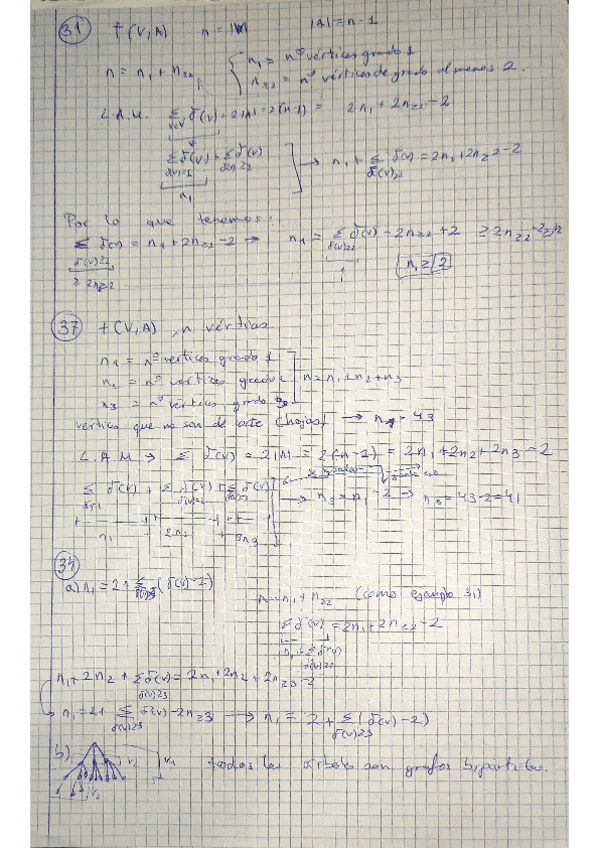 31 T(V,A) n=|V| |A|=n-1
n = n₁ + n≥2 { n₁ = nº vértices grado 1
n≥2 = nº vértices de grado al menos 2.
L.A.M. Σ δ(v) = 2|A| = 2(n-1) = 2n₁ + 2n≥2 - 2
v∈V
Σ δ(v) + Σ δ(v) → n₁ + Σ δ(v) = 2n₁ + 2n≥2 - 2
δ(v)=1 δ(v)≥2 δ(v)≥2
n₁
Por lo que tenemos:
Σ δ(v) = n₁ + 2n≥2 - 2 → n₁ = Σ δ(v) - 2n≥2 + 2
δ(v)≥2 δ(v)≥2
≥ 2n≥2
n₁ ≥ 2
37 T(V,A), n vértices
n₁ = nº vértices grado 1
n₂ = nº vértices grado 2 n = n₁ + n₂ + n₃
n₃ = nº vértices grado 3
vértices que no son de corte (hojas) → = 43
L.A.M → Σ δ(v) = 2|A| = 2(n-1) = 2n₁ + 2n₂ + 2n₃ - 2
Σ δ(v) + Σ δ(v) + Σ δ(v) → n₃ = n₁ - 2 → n₃ = 43-2 = 41
n₁ + 2n₂ + 3n₃
34
a) n₁ = 2 + Σ (δ(v)-2) n = n₁ + n≥2 (como ejemplo 31)
Σ δ(v) = 2n₁ + 2n≥2 - 2
n₁ + Σ δ(v)
δ(v)≥2
n₁ + 2n₂ + Σ δ(v) = 2n₁ + 2n₂ + 2n≥3 - 2
δ(v)≥3
n₁ = 2 + Σ δ(v) - 2n≥3 → n₁ = 2 + Σ (δ(v) - 2)
δ(v)≥3 δ(v)≥3
b) V₂ V₁ todos los árboles son grafos bipartitos.
V₂